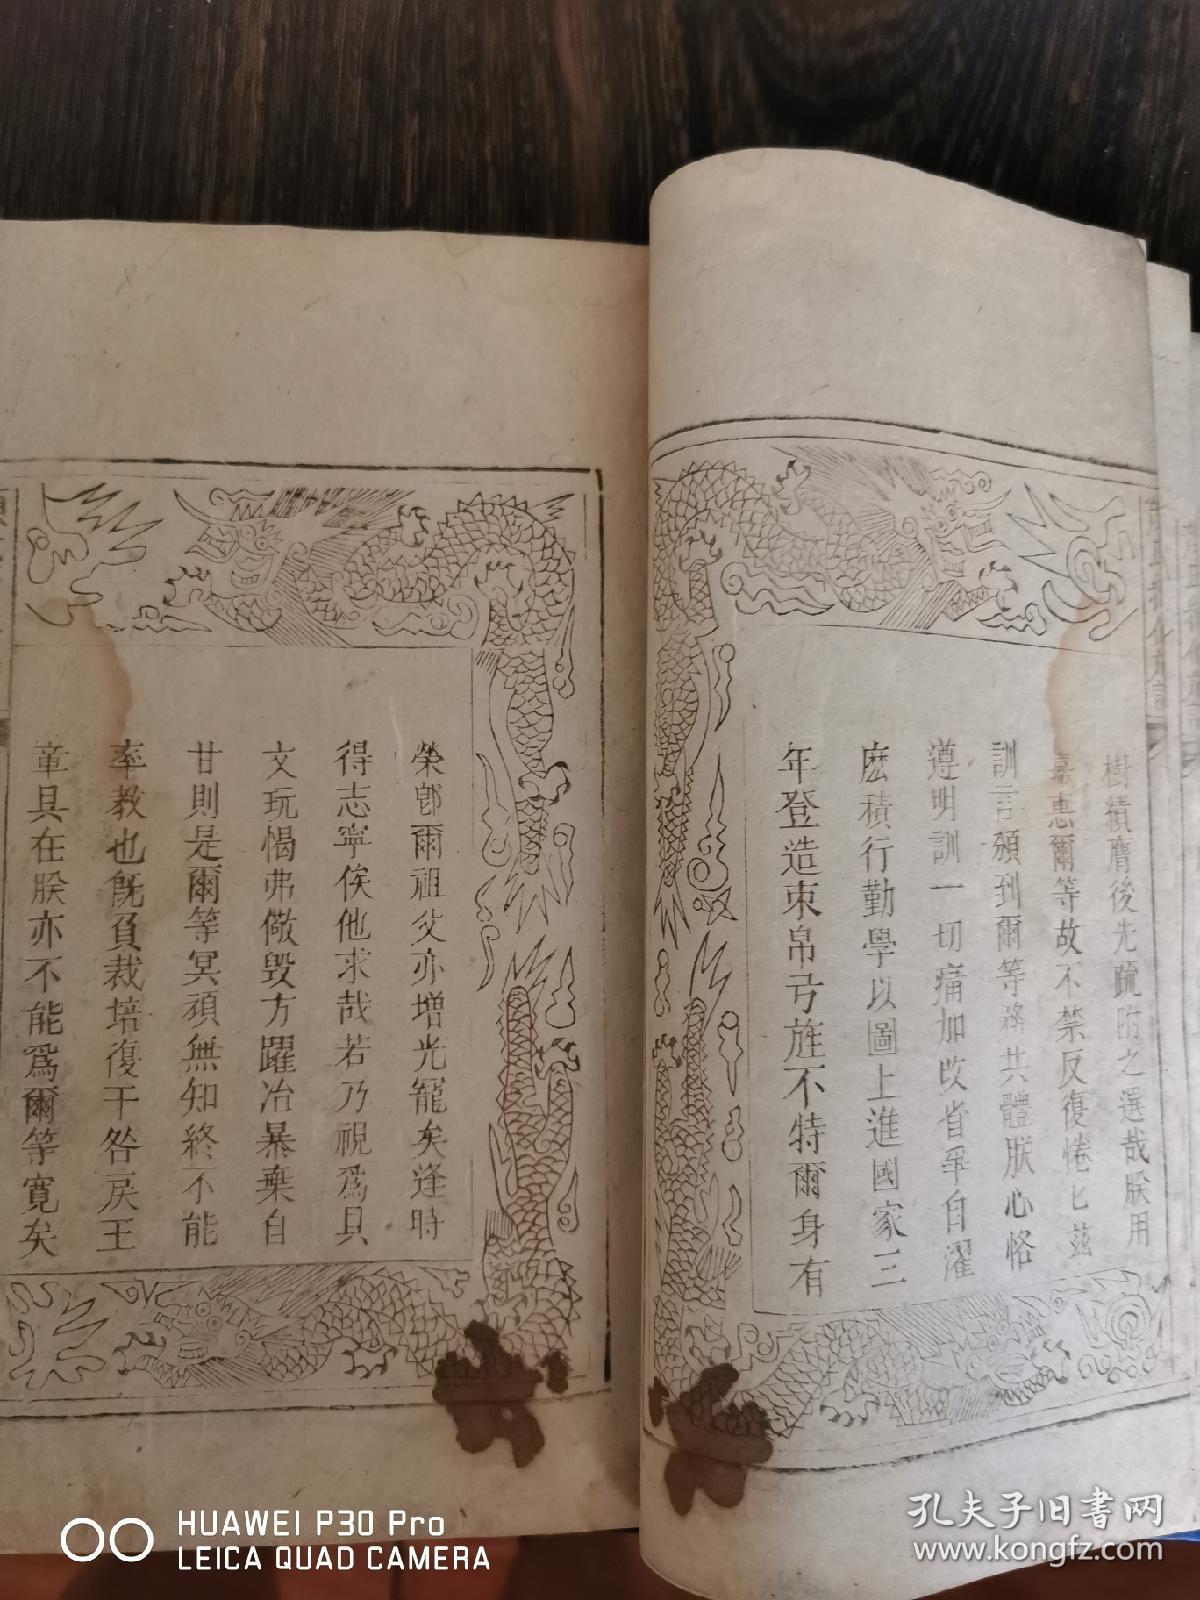 樹績膺後先疏附之選哉朕用
嘉惠爾等故不禁反復惓匕茲
訓言頒到爾等務共體朕心恪
遵明訓一切痛加改省爭自濯
磨積行勤學以圖上進國家三
年登造束帛弓旌不特爾身有
榮卽爾祖父亦增光寵矣逢時
得志寧俟他求哉若乃視爲具
文玩愒弗儆毀方躍冶暴棄自
甘則是爾等冥頑無知終不能
率教也旣負裁培復干咎戾王
章具在朕亦不能爲爾等寬矣
HUAWEI P30 Pro
LEICA QUAD CAMERA
孔夫子旧书网
www.kongfz.com